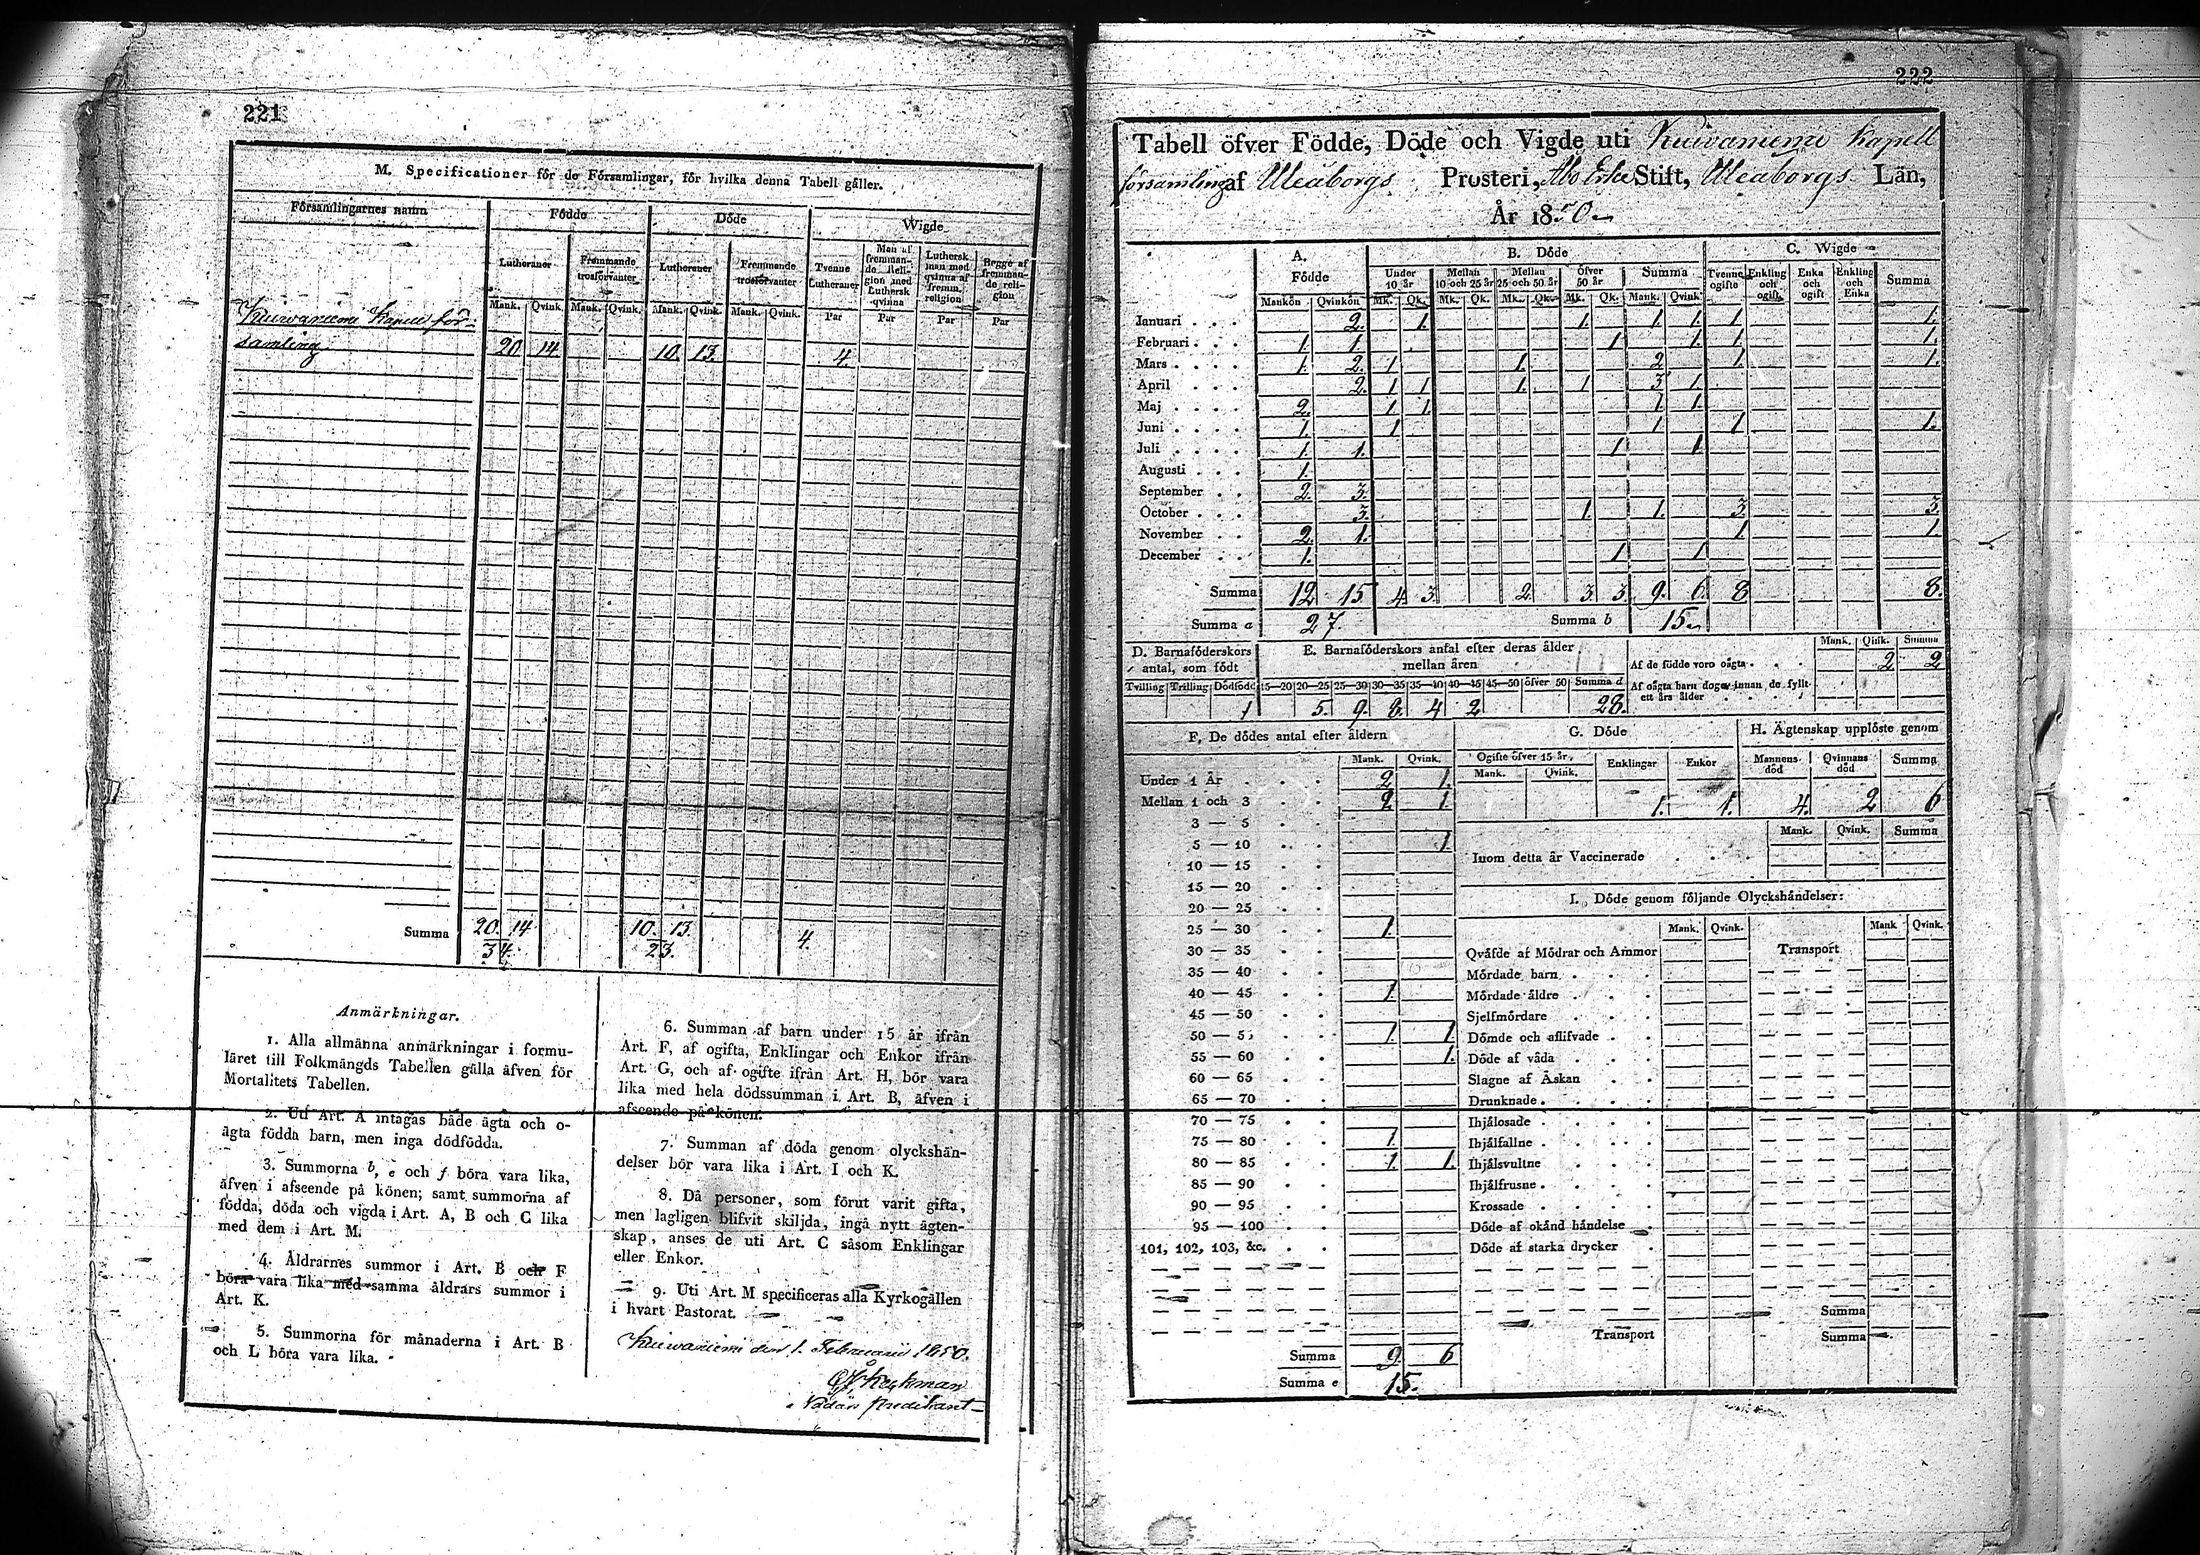 221
M. Specificationer för de Församlingar, för hvilka denna Tabell gäller.
Församlingarnes namn Födde Döde Wigde
Lutheraner Främmande trosförvanter Lutheraner Främmande trosförvanter Tvenne Lutheraner Man af fremmande Religion med Luthersk qvinna Luthersk man med qvinna af fremm. religion Begge af fremmande religion
Mank. Qvink. Mank. Qvink. Mank. Qvink. Mank. Qvink. Par Par Par Par
Kuiwaniemi Kapell för-
samling 20 14 10. 13. 4.
Summa 20. 14 10. 13. 4.
34. 23.
Anmärkningar.
1. Alla allmänna anmärkningar i formu-
läret till Folkmängds Tabellen gälla äfven för
Mortalitets Tabellen.
2. Uti Art. A intagas både ägta och o-
ägta födda barn, men inga dödfödda.
3. Summorna b, e och f böra vara lika,
äfven i afseende på könen; samt summorna af
födda, döda och vigda i Art. A, B och C lika
med dem i Art. M.
4. Åldrarnes summor i Art. B och F
böra vara lika med samma åldrars summor i
Art. K.
5. Summorna för månaderna i Art. B
och L böra vara lika.
6. Summan af barn under 15 år ifrån
Art. F, af ogifta, Enklingar och Enkor ifrån
Art. G, och af ogifte ifrån Art. H, bör vara
lika med hela dödssumman i Art. B, äfven i
afseende på könen.
7. Summan af döda genom olyckshän-
delser bör vara lika i Art. I och K.
8. Då personer, som förut varit gifta,
men lagligen blifvit skiljda, ingå nytt ägten-
skap, anses de uti Art. C såsom Enklingar
eller Enkor.
9. Uti Art. M specificeras alla Kyrkogällen
i hvart Pastorat.
Kuiwaniemi den 1. Februarii 1850.
Heckman
Predikant
222
Tabell öfver Födde, Döde och Vigde uti Kuivaniemi Kapell
församling af Uleåborgs Prosteri, Åbo Erke Stift, Uleåborgs Län,
År 1850
A. Födde B. Döde C. Wigde
Under 10 år Mellan 10 och 25 år Mellan 25 och 50 år Öfver 50 år Summa Tvenne ogifte Enkling och ogift Enka och ogift Enkling och Enka Summa
Mankön Qvinkön Mk. Qk. Mk. Qk. Mk. Qk. Mk. Qk. Mank. Qvink.
Januari 2. 1. 1. 1. 1. 1. 1.
Februari 1. 1. 1. 1. 1. 1.
Mars 1. 2. 1 1. 2 1. 1.
April 2. 1 1 1. 1 3 1
Maj 2. 1 1. 1 1.
Juni 1. 1 1 1 1.
Juli 1. 1. 1 1
Augusti 1.
September 2. 3.
October 3. 1. 1. 3. 3.
November 2. 1. 1. 1.
December 1. 1 1
Summa 12 15 4. 3. 2. 3. 3. 9. 6. 8 8.
Summa a 27. Summa b 15
D. Barnaföderskors antal, som födt
Tvilling Trilling Dödfödd
1
E. Barnaföderskors antal efter deras ålder
mellan åren
15—20 20—25 25—30 30—35 35—40 40—45 45—50 öfver 50 Summa d
5. 9. 8. 4 2 28.
Mank. Qink. Summa
Af de födde voro oägta 2 2
Af oägta barn dogo innan de fyllt
ett års ålder
F. De dödes antal efter åldern
Mank. Qvink.
Under 1 År 2 1.
Mellan 1 och 3 2 1.
3 — 5
5 — 10 1.
10 — 15
15 — 20
20 — 25
25 — 30 1.
30 — 35
35 — 40
40 — 45 1.
45 — 50
50 — 55 1. 1.
55 — 60 1.
60 — 65
65 — 70
70 — 75
75 — 80 1.
80 — 85 1. 1.
85 — 90
90 — 95
95 — 100
101, 102, 103, &c.
Summa 9. 6
Summa e 15.
G. Döde
Ogifte öfver 15 år Enklingar Enkor
Mank. Qvink.
1. 1.
H. Ägtenskap upplöste genom
Mannens död Qvinnans död Summa
4. 2 6
Mank. Qvink. Summa
Inom detta år Vaccinerade
I. Döde genom följande Olyckshändelser:
Mank. Qvink. Mank Qvink.
Qväfde af Mödrar och Ammor Transport
Mördade barn
Mördade äldre
Sjelfmördare
Dömde och aflifvade
Döde af våda
Slagne af Åskan
Drunknade
Ihjälosade
Ihjälfallne
Ihjälsvultne
Ihjälfrusne
Krossade
Döde af okänd händelse
Döde af starka drycker
Summa
Transport Summa